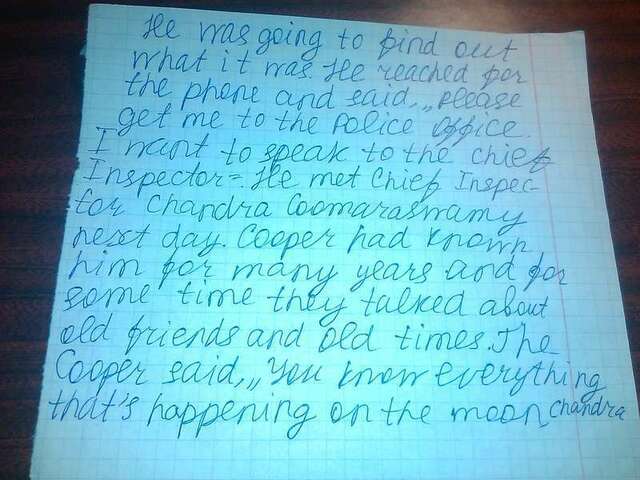 He was going to find out
what it was. He reached for
the phone and said, „Please
get me to the Police office.
I want to speak to the chief
Inspector". He met Chief Inspec-
tor Chandra Coomaraswamy
next day. Cooper had known
him for many years and for
some time they talked about
old friends and old times. The
Cooper said, „You know everything
that's happening on the moon, Chandra